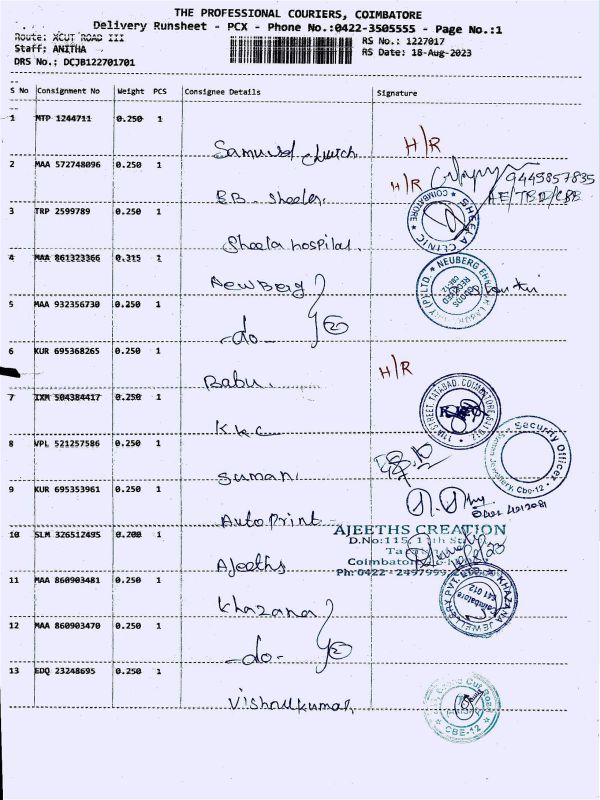 THE PROFESSIONAL COURIERS, COIMBATORE
Delivery Runsheet - PCX - Phone No.:0422-3505555 - Page No.:1
Route: XCUT ROAD III
Staff: ANITHA
DRS No.: DCJB122701701
RS No.: 1227017
RS Date: 18-Aug-2023
S No Consignment No Weight PCS Consignee Details Signature
1 MTP 1244711 0.250 1
H/R
2 MAA 572748096 0.250 1
H/R 9445857835
EB - Sheela
AE/TBD/CBE
3 TRP 2599789 0.250 1
COIMBATORE SHEELA CLINIC
Sheela hospital.
4 MAA 861323366 0.315 1
NEUBERG
GOODS
RECEIVED
CBE-12
Newberg
5 MAA 932356730 0.250 1
-do- 2
6 KUR 695368265 0.250 1
H/R
Babu.
7 IXM 504384417 0.250 1
11TH STREET, TATABAD, COIMBATORE-641012.
K.K.C
KKC
8 VPL 521257586 0.250 1
Security Officer
Cbe-12
Suman.
9 KUR 695353961 0.250 1
Auto Print
10 SLM 326512495 0.200 1
AJEETHS CREATION
D.No:115, 11th
Coimbatore
Ph: 0422 - 2497999
Ajeeths
11 MAA 860903481 0.250 1
KHAZANA JEWELLERY PVT. LTD.
Coimbatore
641 012
Khazana
12 MAA 860903470 0.250 1
-do- 2
13 EDQ 23248695 0.250 1
CBE-12
Vishnukumar